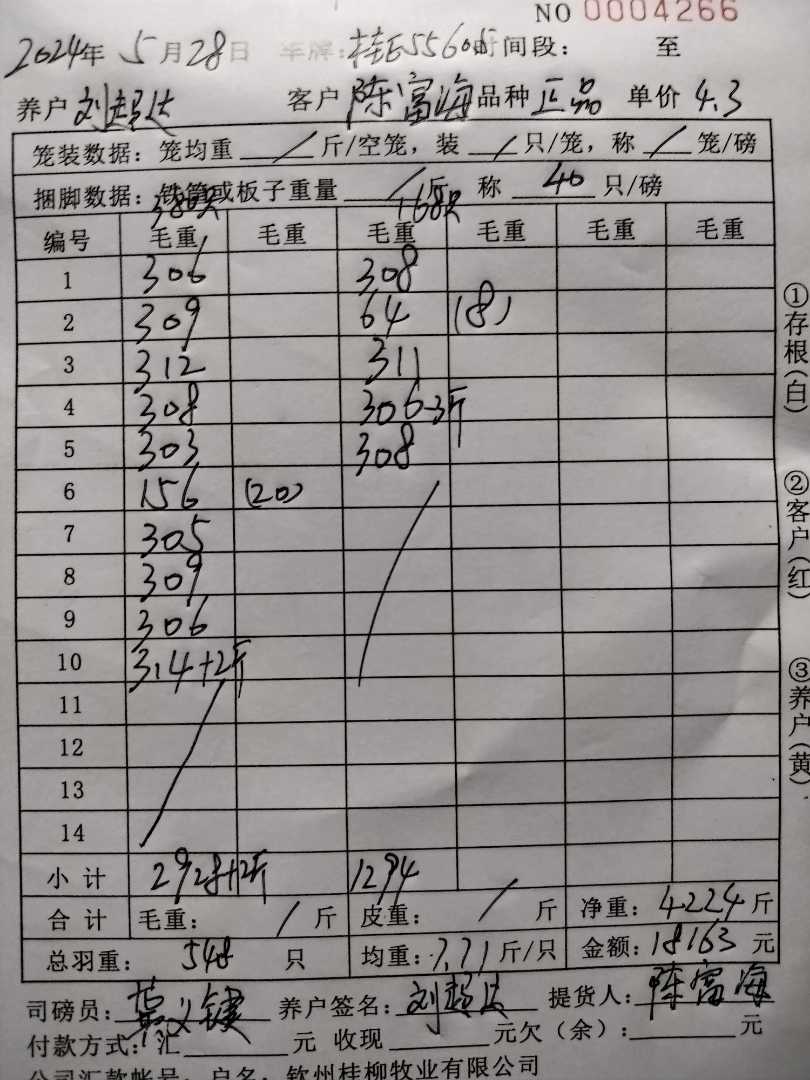 NO 0004266
2024年 5月28日 车牌:桂E5560 时间段: 至
养户 刘超达 客户 陈富海 品种 正品 单价 4.3
笼装数据: 笼均重 / 斤/空笼, 装 / 只/笼, 称 / 笼/磅
捆脚数据: 铁筒或板子重量 / 斤 称 40 只/磅
380只 168只
编号 毛重 毛重 毛重 毛重 毛重 毛重
1 306 308
2 309 64 (8)
3 312 311
4 308 306-3斤
5 303 308
6 156 (20)
7 305
8 309
9 306
10 314+2斤
11
12
13
14
小计 2928+2斤 1294
合计 毛重: / 斤 皮重: / 斤 净重: 4224斤
总羽重: 548 只 均重: 7.71斤/只 金额: 18163元
司磅员: 义键 养户签名: 刘超达 提货人: 陈富海
付款方式: 汇 元 收现 元欠(余): 元
公司汇款帐号: 户名: 钦州桂柳牧业有限公司
①存根(白)
②客户(红)
③养户(黄)